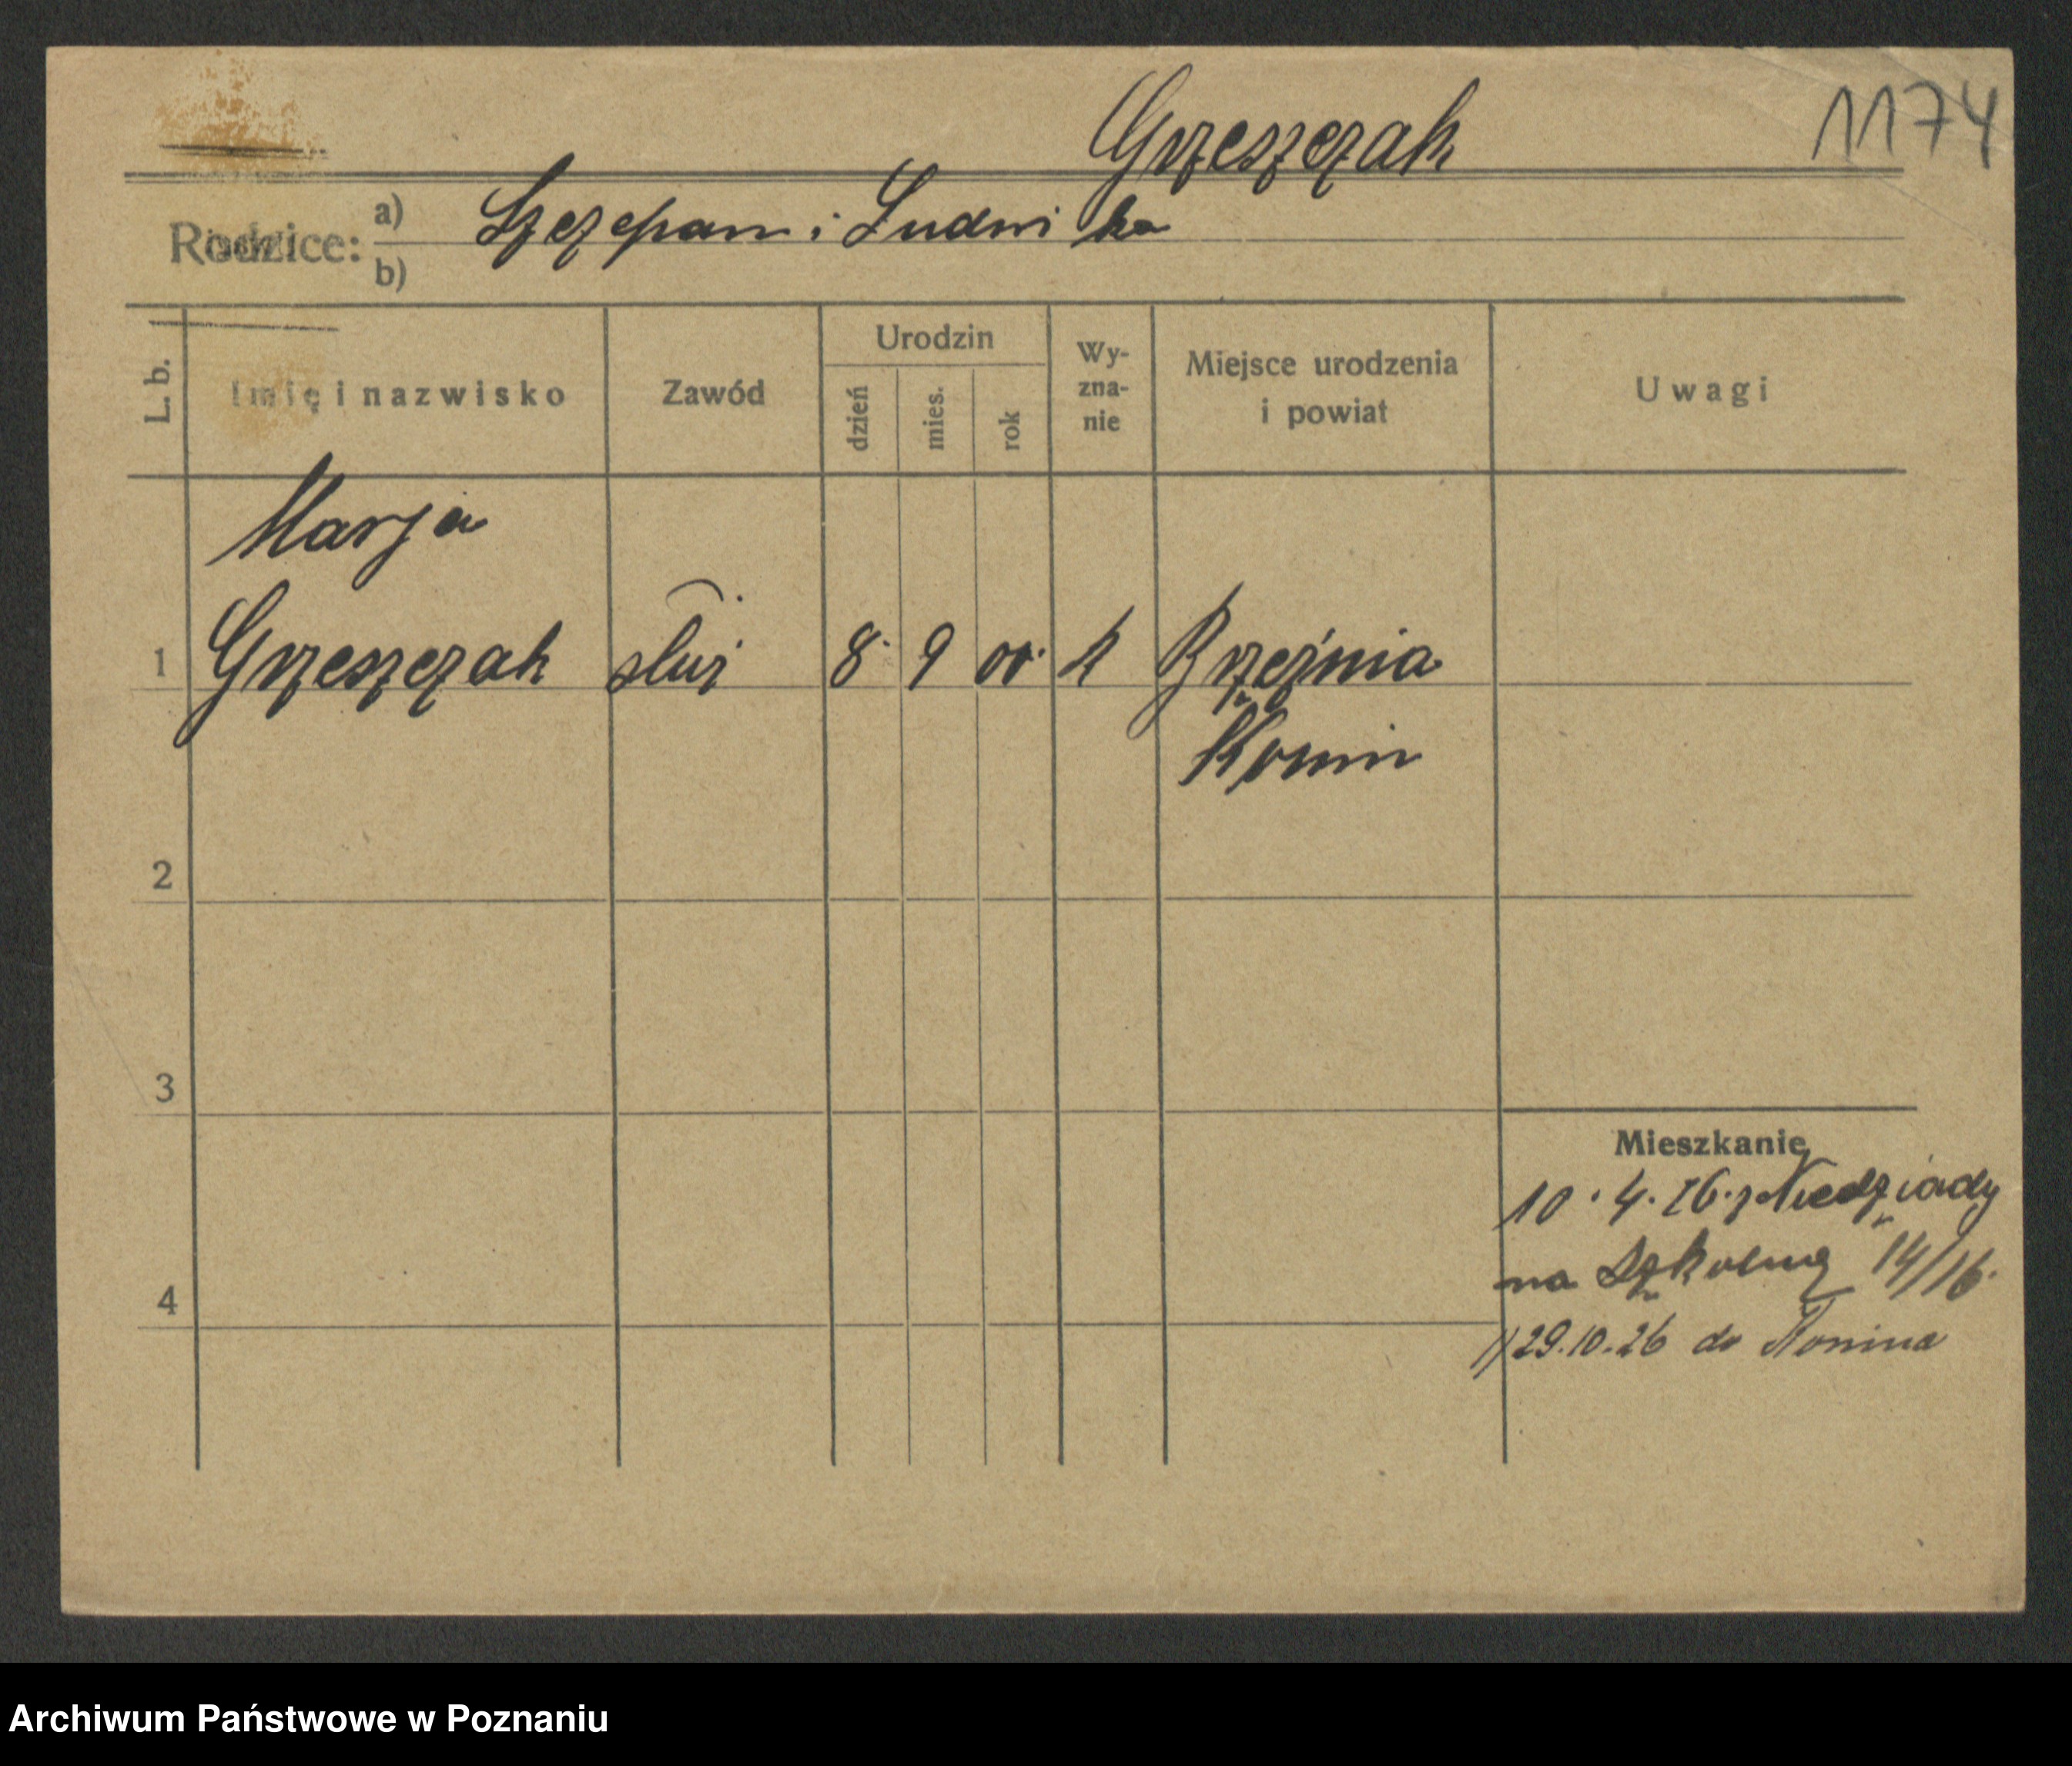 Grzeszczak
1174
Rodzice: a) Szczepan i Ludwika
b)
L. b. Imię i nazwisko Zawód Urodzin dzień mies. rok Wyznanie Miejsce urodzenia i powiat Uwagi
Marja
1 Grzeszczak służ 8. 9 00. k Brzeźnia
Konin
2
3
Mieszkanie
10. 4. 26. z Niedziady
na Szkolną 14/16.
4
1) 29.10.26 do Konina
Archiwum Państwowe w Poznaniu